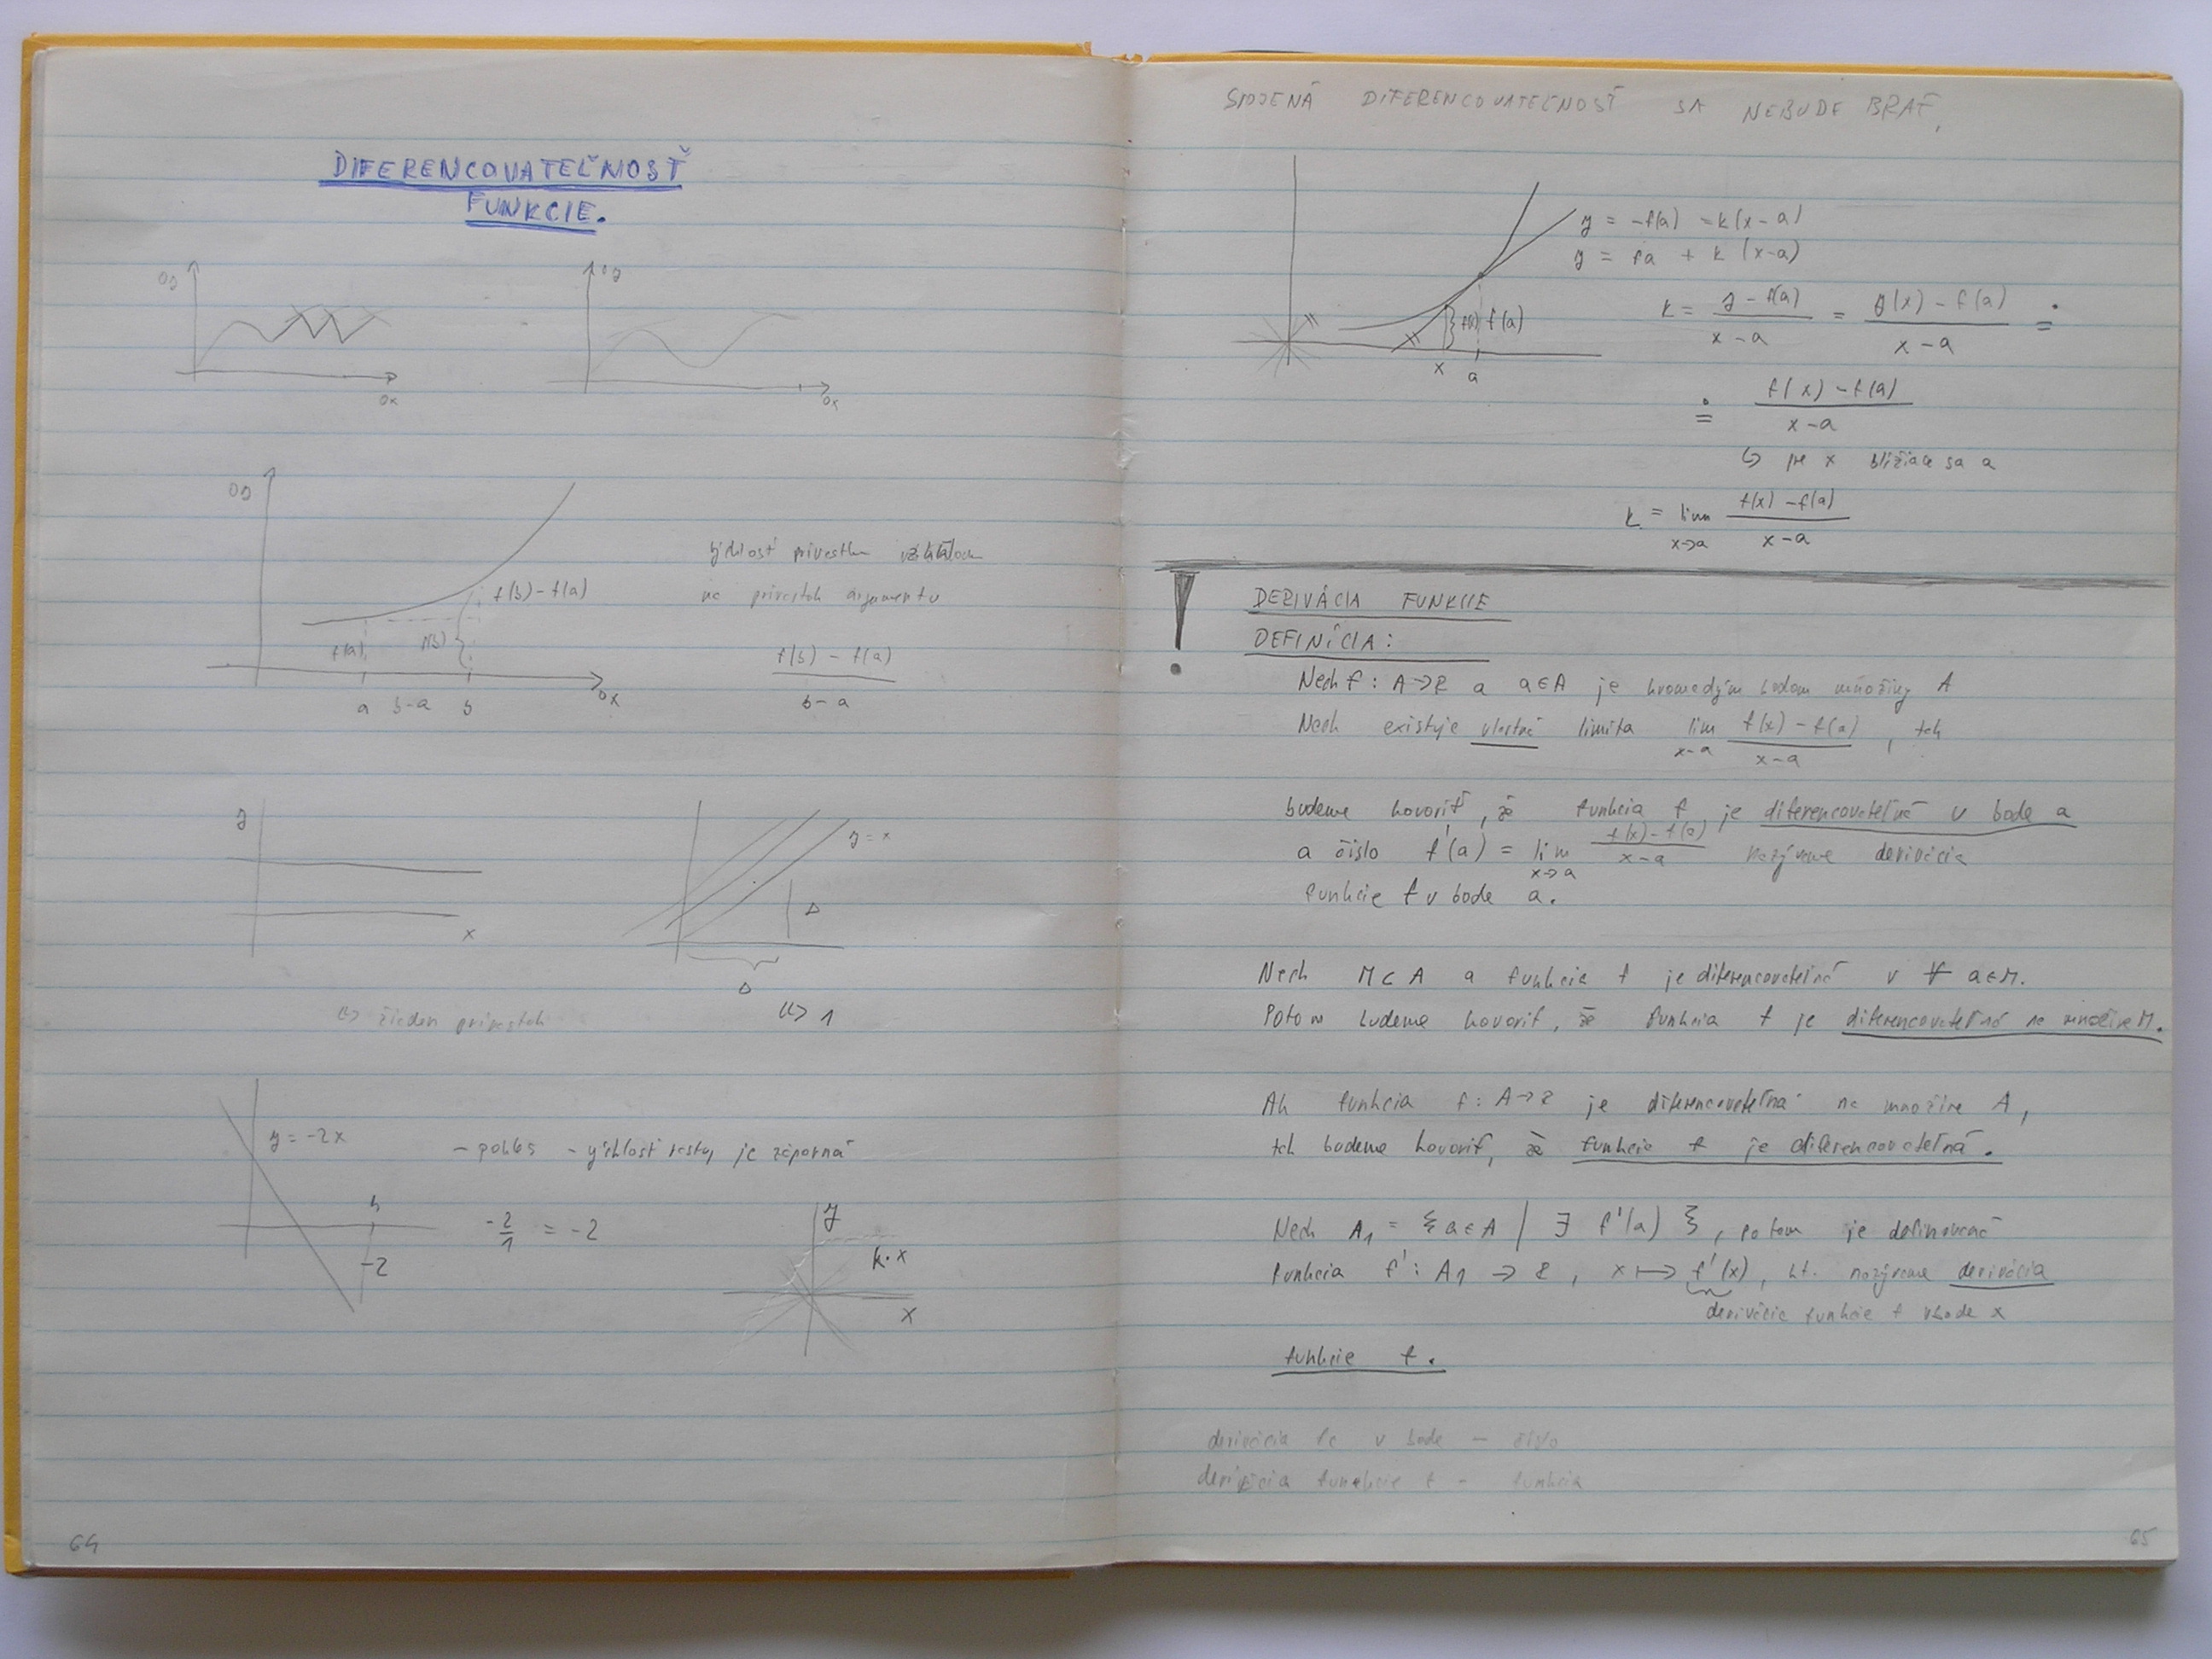 DIFERENCOVATEĽNOSŤ
FUNKCIE.
oy
ox
oy
ox
oy
f(b)-f(a)
f(a)
f(b)
a b-a b
ox
rýchlosť prírastku vzhľadom
na prírastok argumentu
f(b) - f(a)
b-a
y
x
↳ žiaden prírastok
y=x
Δ
Δ
↳ 1
y=-2x
- pokles - rýchlosť rastu je záporná
1
-2
-2/1 = -2
y
k·x
x
64
SPOJENÁ DIFERENCOVATEĽNOSŤ SA NEBUDE BRAŤ,
y = -f(a) = k(x-a)
y = fa + k (x-a)
k = y-f(a)/x-a = y(x)-f(a)/x-a ≐
f(x) f(a)
x a
≐ f(x)-f(a)/x-a
↳ pre x blížiace sa a
k = lim x→a f(x)-f(a)/x-a
!
DERIVÁCIA FUNKCIE
DEFINÍCIA:
Nech f: A→R a a∈A je hromadným bodom množiny A
Nech existuje vlastná limita lim x→a f(x)-f(a)/x-a , tak
budeme hovoriť, že funkcia f je diferencovateľná v bode a
a číslo f'(a) = lim x→a f(x)-f(a)/x-a nazývame derivácia
funkcie f v bode a.
Nech M⊂A a funkcia f je diferencovateľná v ∀ a∈M.
Potom budeme hovoriť, že funkcia f je diferencovateľná na množine M.
Ak funkcia f: A→R je diferencovateľná na množine A,
tak budeme hovoriť, že funkcia f je diferencovateľná.
Nech A₁ = {a∈A | ∃ f'(a)}, potom je definovaná
funkcia f': A₁ → R, x ↦ f'(x), kt. nazývame derivácia
derivácia funkcie f v bode x
funkcie f.
derivácia fc v bode - číslo
derivácia funkcie f - funkcia
65